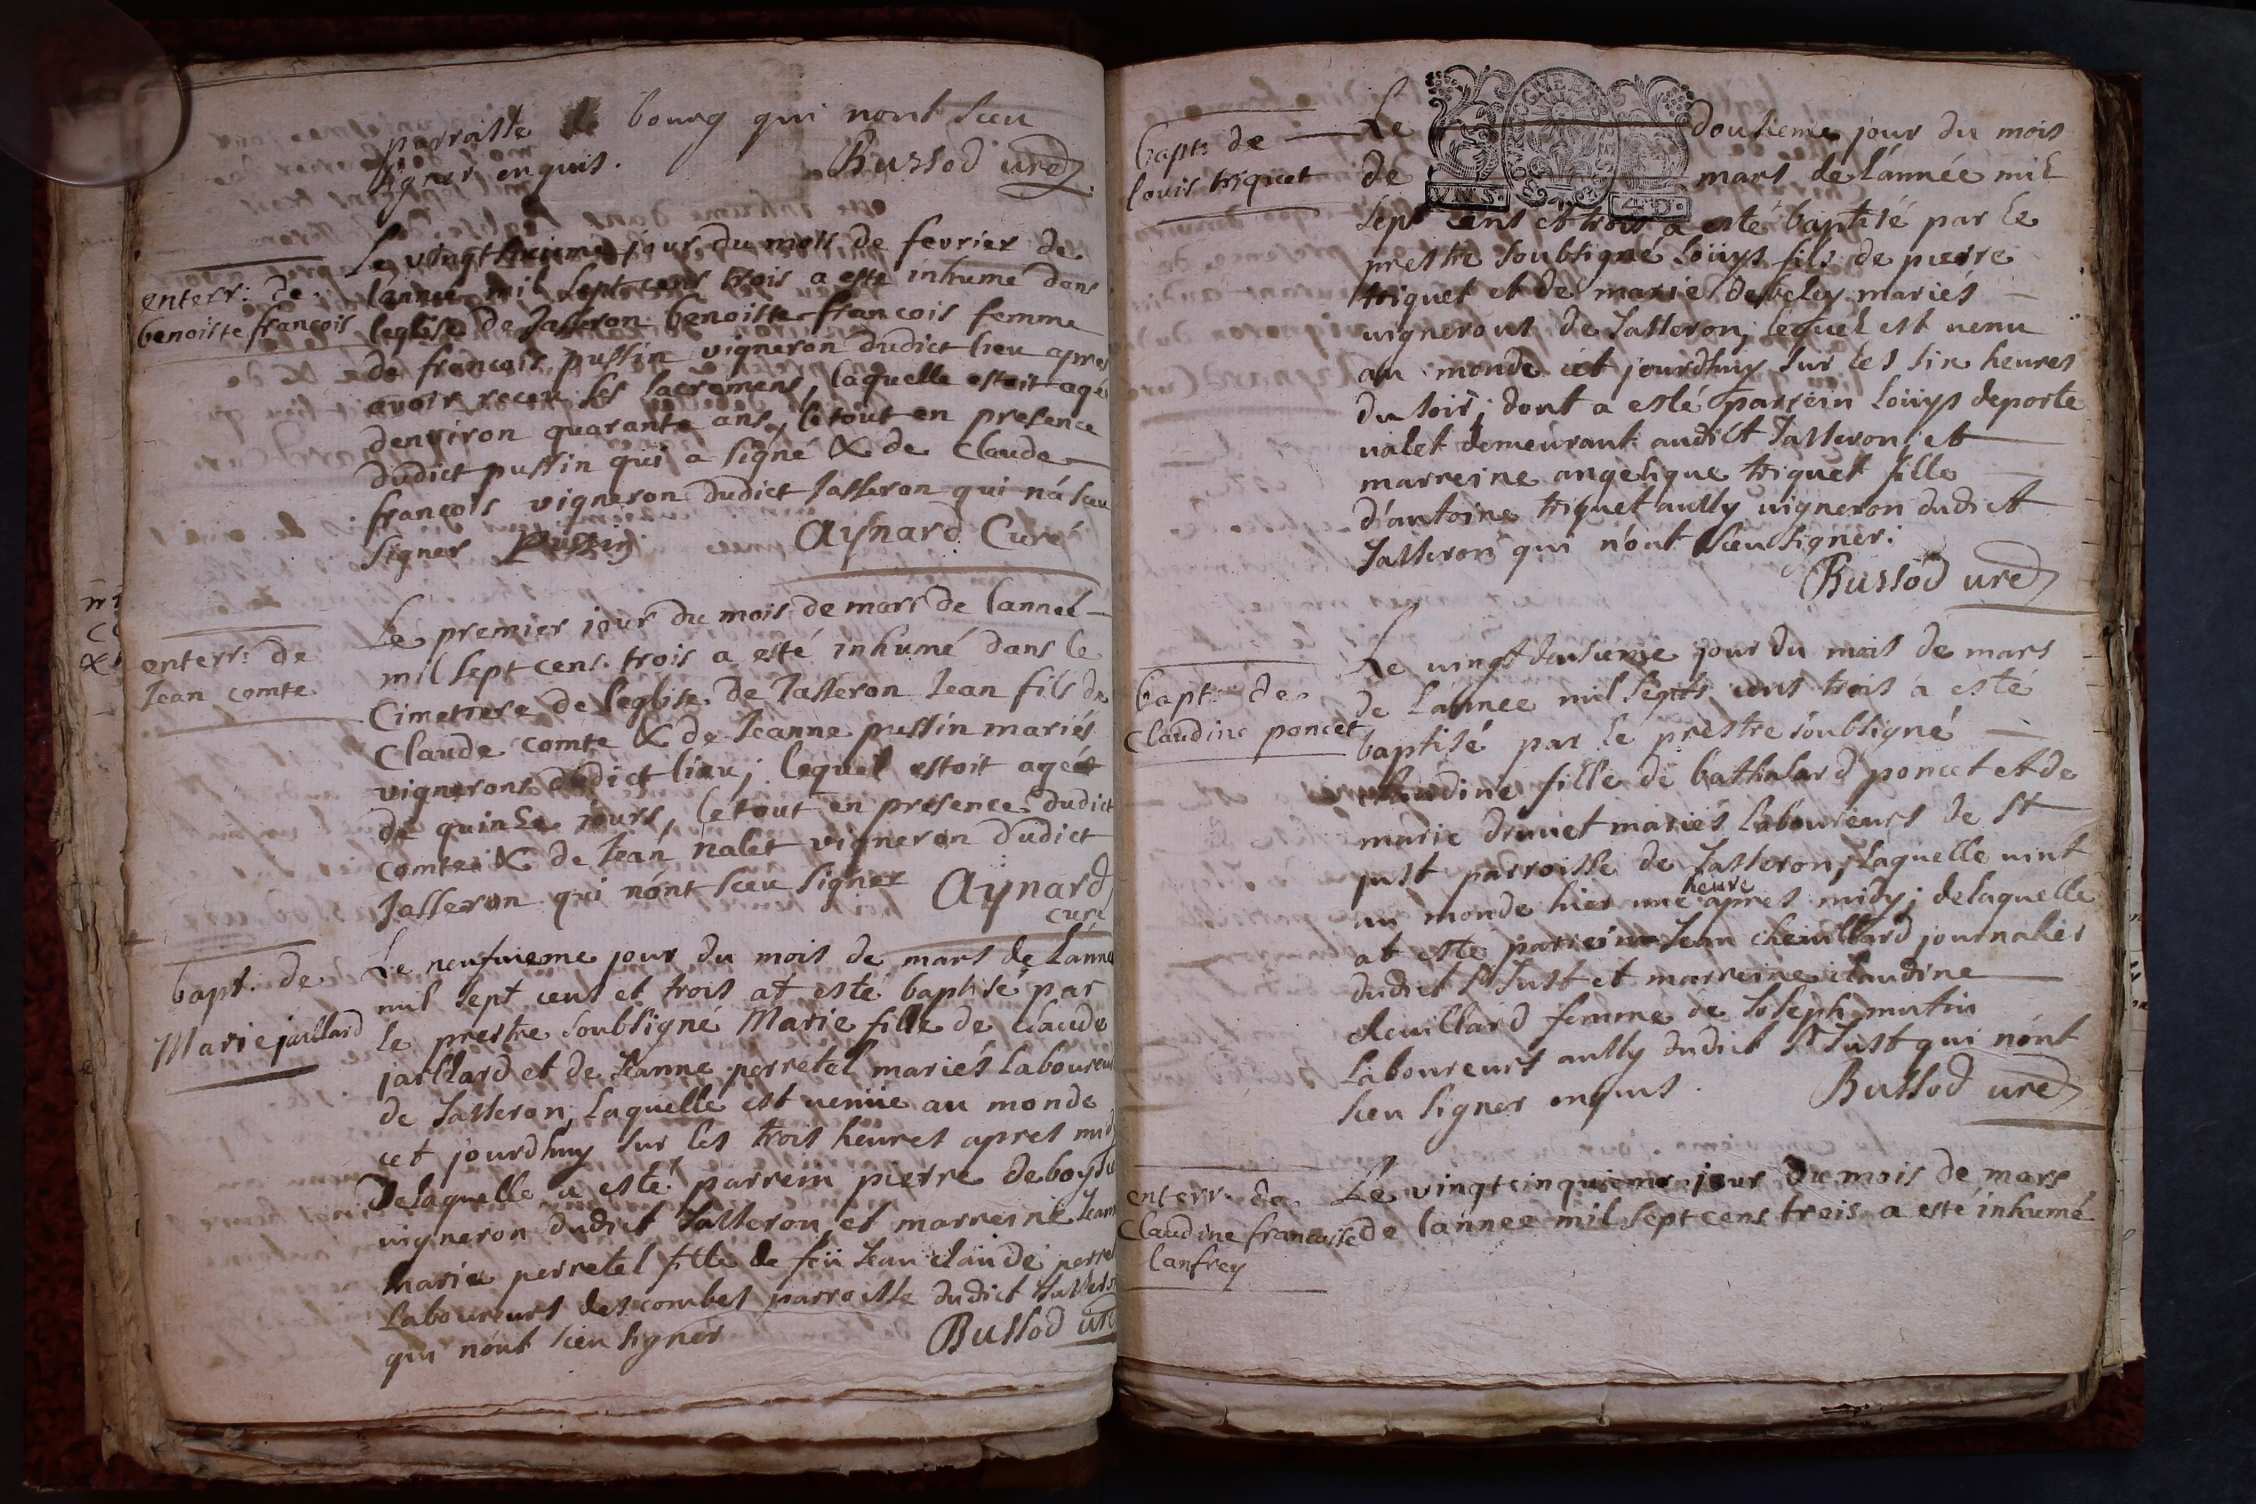 parroisse de bourg qui nont sceu
signer enquis. Bussod vire
enterr: de
benoiste francois
Le vingt huitieme jour du mois de fevrier de
lannee mil sept cens trois a esté inhume dans
leglise de Jasseron benoiste francois femme
de francois pussin vigneron dudict lieu apres
avoir receu les sacremens, laquelle estoit agee
denviron quarante ans, le tout en presence
dudict pussin qui a signé & de Claude
francois vigneron dudict Jasseron qui n'a sceu
signer Pussin Aynard Curé
enterr: de
Jean comte
Le premier jour du mois de mars de lannee
mil sept cens trois a esté inhumé dans le
Cimetiere de leglise de Jasseron Jean fils de
Claude comte & de Jeanne pussin mariés
vignerons dudict lieu; lequel estoit agé
de quinze jours, le tout en presence dudict
comte & de Jean nalet vigneron dudict
Jasseron qui nónt sceu signer Aynard
curé
bapt: de
Marie jaillard
Le neufvieme jour du mois de mars de lánnee
mil sept cens et trois at esté baptisé par
le prestre soubsigné Marie fille de claude
jaillard et de Jeanne perretel mariés laboureurs
de Jasseron, laquelle est venüe au monde
cet jourdhuy sur les trois heures apres midy
delaquelle a esté parrein pierre deboys
vigneron dudict Jasseron et marreine Jeanne
marie perretel fille de feü Jean claude perretel
laboureurs des combes parroisse dudict Jasseron
qui nónt sceu signer Bussod vire
bapt: de
louis triquet
Le dousieme jour du mois
de mars de lánnée mil
sept cens et trois a esté baptisé par le
prestre soubsigné loüys fils de pierre
triquet et de marie develey mariés
vignerons de Jasseron, lequel est venu
au monde cet jourdhuy sur les six heures
du soir; dont a esté parrein loüys deporte
valet demeurant audict Jasseron et
marreine angelique triquet fille
d'antoine triquet aussy vigneron dudict
Jasseron qui nónt sceu signer.
Bussod vire
bapt: de
Claudine poncet
Le vingt deusieme jour du mois de mars
de lánnee mil sept cens trois a esté
baptisé par le prestre soubsigné
claudine fille de bathalard poncet et de
marie druuet mariés laboureurs de st
just parroisse de Jasseron, laquelle vint
au monde hier une heure apres midy; delaquelle
at esté parrein Jean chevillard journalier
dudict St Just et marreine claudine
chevillard femme de Joseph mutin
laboureurs aussy dudict St Just qui nónt
sceu signer enquis. Bussod vire
enterr: de
Claudine francoise
lanfrey
Le vingt cinquieme jour du mois de mars
de lánnee mil sept cens trois a esté inhumé